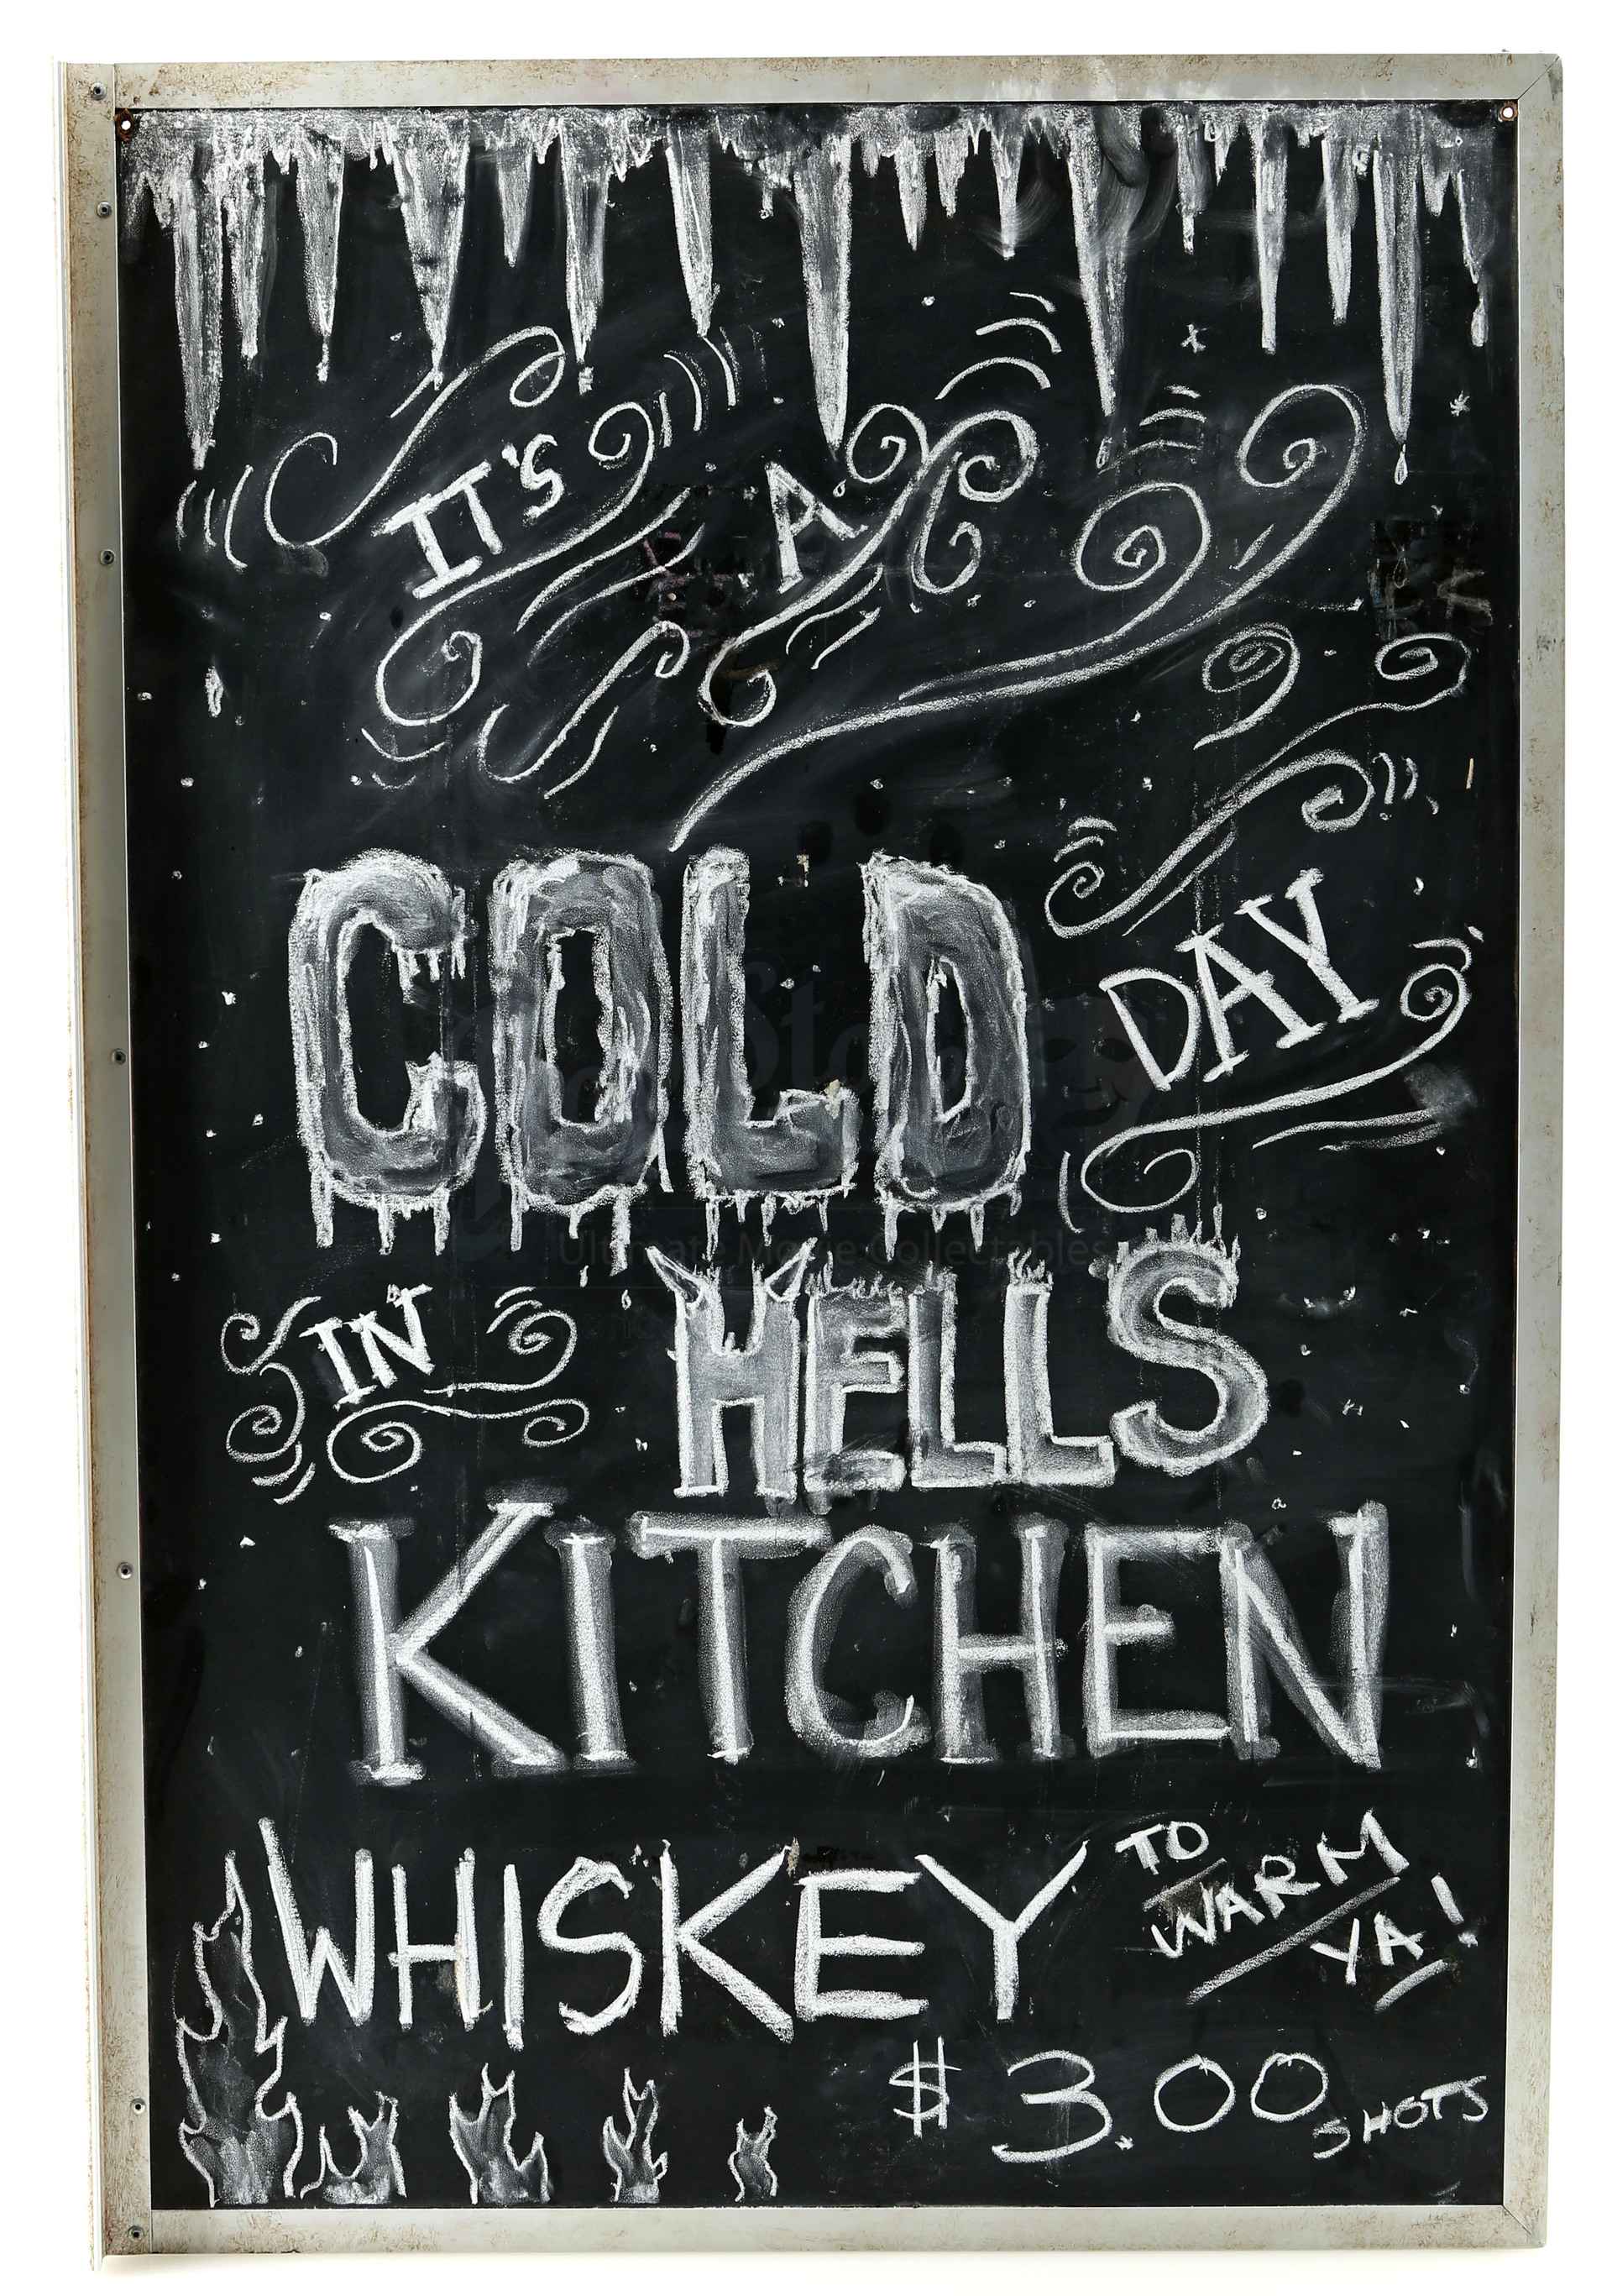 IT'S A
COLD DAY
IN HELLS
KITCHEN
WHISKEY TO
WARM
YA!
$3.00 SHOTS
Ultimate Movie Collectables